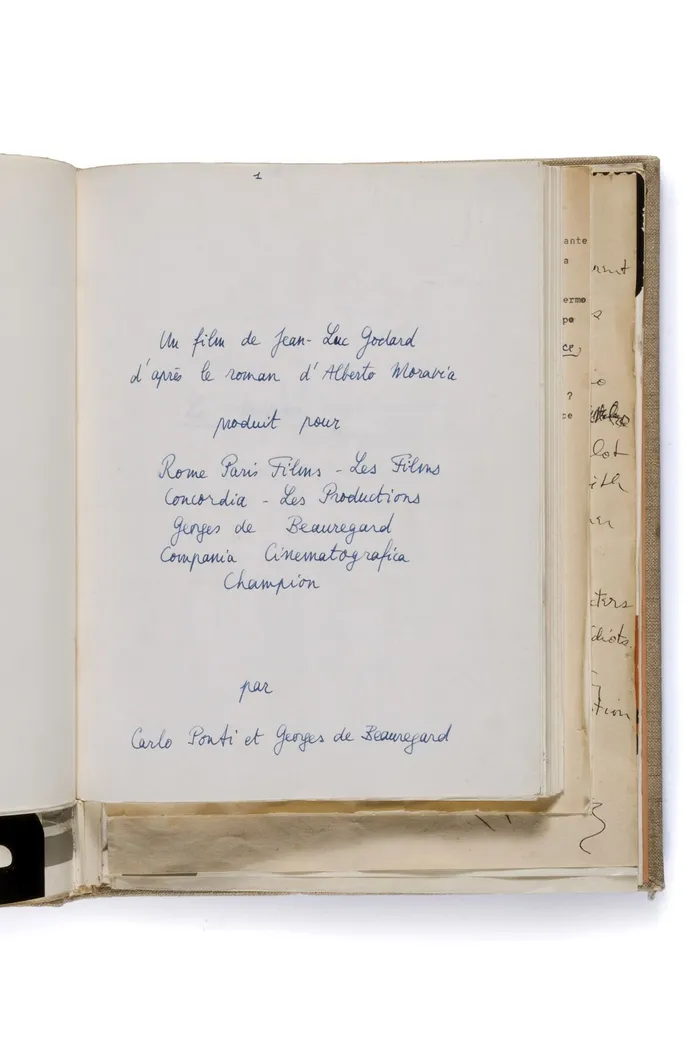 1
Un film de Jean-Luc Godard
d'après le roman d'Alberto Moravia
produit pour
Rome Paris Films - Les Films
Concordia - Les Productions
Georges de Beauregard
Compania Cinematografica
Champion
par
Carlo Ponti et Georges de Beauregard
ante
a
ermo
po
ce,
?
ce
lot
ith
ters
diots.
tion